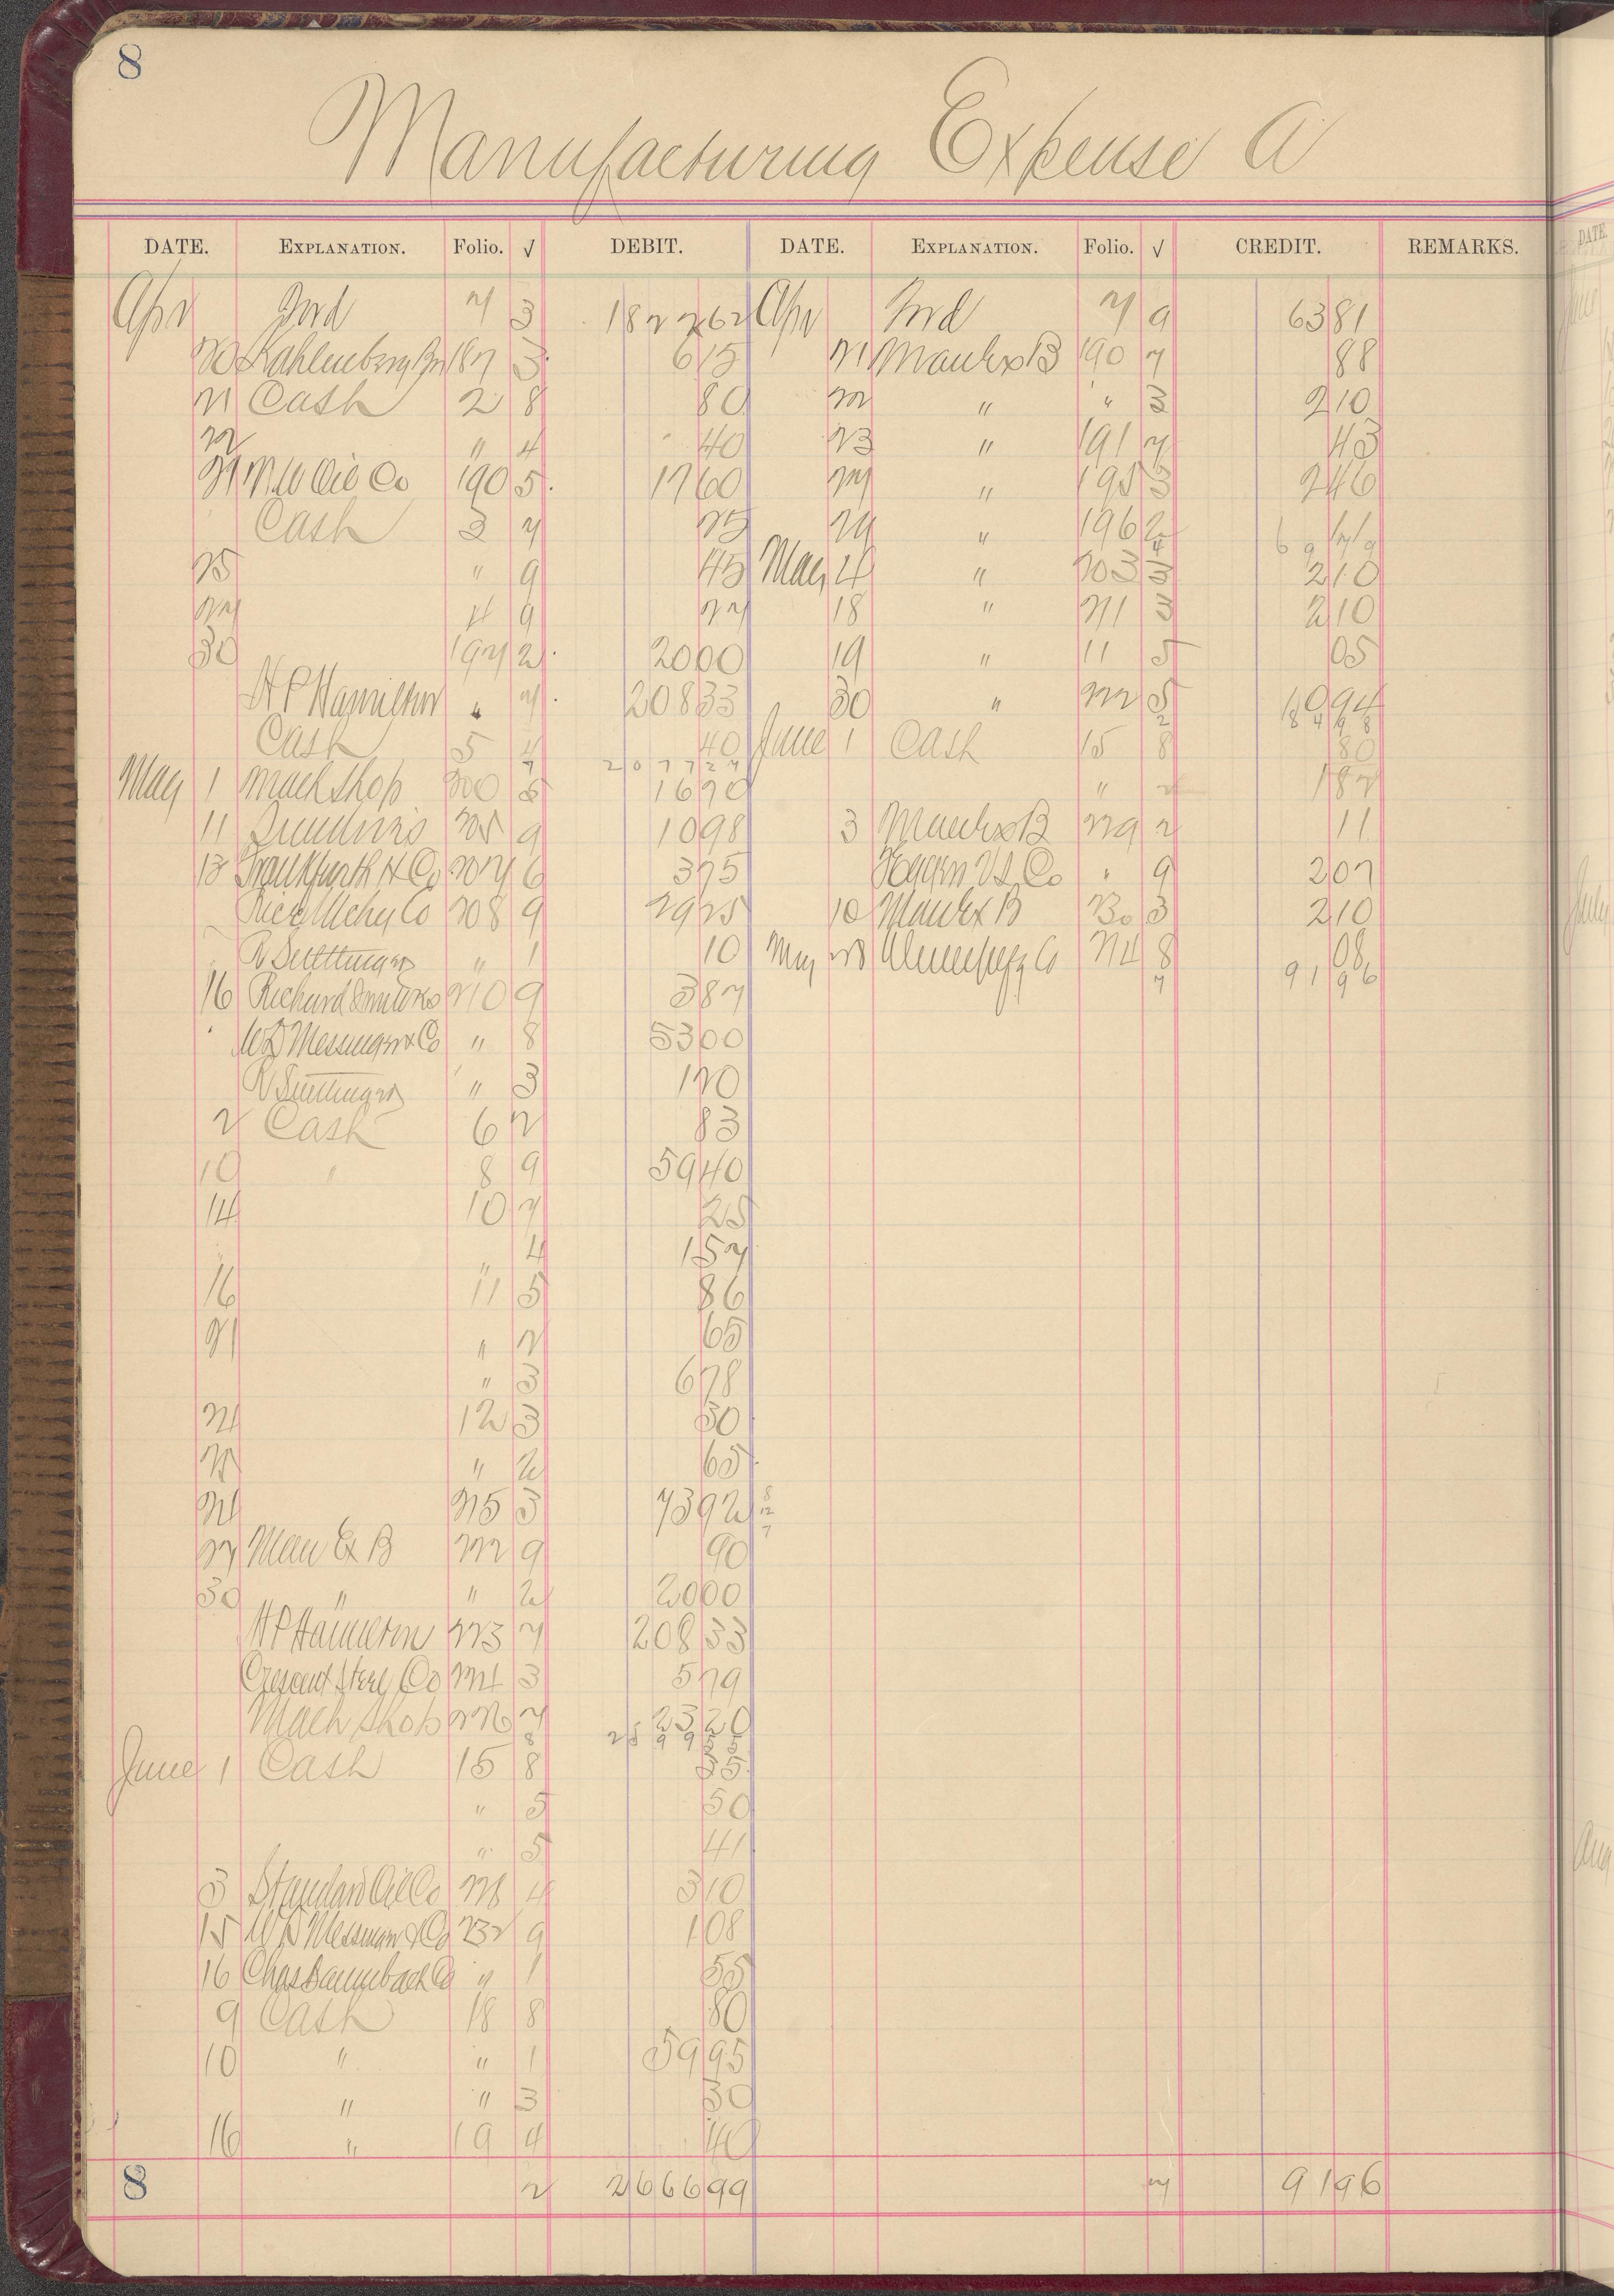 8
Manufacturing Expense A
DATE. EXPLANATION. Folio. √ DEBIT. DATE. EXPLANATION. Folio. √ CREDIT. REMARKS.
Apr Fwd 7 3 1822 62 Apr Fwd 7 9 63 81
20 Kahlenberg Br 187 3 6 15 21 Man Ex B 190 7 88
21 Cash 2 8 80 22 " " 3 2 10
22 " 4 40 23 " 191 7 43
24 N W Oil Co 190 5 17 60 24 " 195 3 2 46
Cash 3 7 25 29 " 196 2
25 " 9 45 May 4 " 203 3 2 10
27 4 9 27 18 " 211 3 2 10
30 197 2 20 00 19 " 11 5 05
H P Hamilton " 7 208 33 30 " 222 5 10 94
Cash 5 4 40 June 1 Cash 15 8 80
May 1 Mach Shop 200 5 16 20 " 2 1 82
11 9 10 98 3 Man Ex B 229 2 11
13 Frankfurth H Co 207 6 3 25 Co " 9 2 07
Rice Mchy Co 208 9 29 25 10 Man Ex B 230 3 2 10
" 1 10 May 28 Co 214 8 08
16 Richard 210 9 3 87 7 91 96
W D Messinger & Co " 8 53 00
" 3 1 20
2 Cash 6 2 83
10 " 8 9 59 40
14 10 7 25
" 4 1 57
16 11 5 86
21 " 2 65
" 3 6 78
24 12 3 30
25 " 2 65
24 215 3 73 92
27 Man Ex B 222 9 90
30 " " 2 20 00
H P Hamilton 223 7 208 33
Crescent Steel Co 224 3 5 79
Mach Shop 226 7 23 20
June 1 Cash 15 8 35
" 5 50
" 5 41
3 Standard Oil Co 228 4 3 10
15 W D Messinger & Co 232 9 1 08
16 Chas Baumbach Co " 1 55
9 Cash 18 8 80
10 " " 1 59 95
" " 3 30
16 " 19 4 40
8 2 2666 99 7 91 96